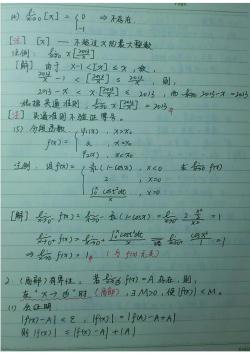 (4) lim x→0 [x] = { 0 -1 ⇒ 不存在.
[注] [x] —— 不超过x的最大整数
注例: lim x→0 x[2013/x]
[解] 由于 x-1<[x]≤x, 故,
2013/x - 1 < [2013/x] ≤ 2013/x, 则,
2013-x < x[2013/x] ≤ 2013, 而 lim x→0 2013-x = 2013
根据夹逼准则, lim x→0 x[2013/x] = 2013.
[注] 夹逼准则不验证等号.
(5) 分段函数
f(x) = { φ₁(x), x>x₀ a, x=x₀ φ₂(x), x<x₀
注例: 设 f(x) = { 2/x²(1-cosx), x<0 2, x=0 ∫₀ˣcost²dt/x, x>0 求 lim x→0 f(x)
[解] lim x→0⁻ f(x) = lim x→0⁻ 2/x²(1-cosx) = lim x→0⁻ 2·x²/2/x² = 1
lim x→0⁺ f(x) = lim x→0⁺ ∫₀ˣcost²dt/x = lim x→0⁺ cosx²/1 = 1
lim x→0 f(x) = 1. (与f(0)无关)
2. (局部)有界性: 若 lim f(x)=A 存在, 则,
在"x→"时 (局部), ∃M>0, 使|f(x)|≤M.
(1) 会证明
|f(x)-A|<ε, |f(x)|=|f(x)-A+A|
则|f(x)|≤|f(x)-A|+|A|